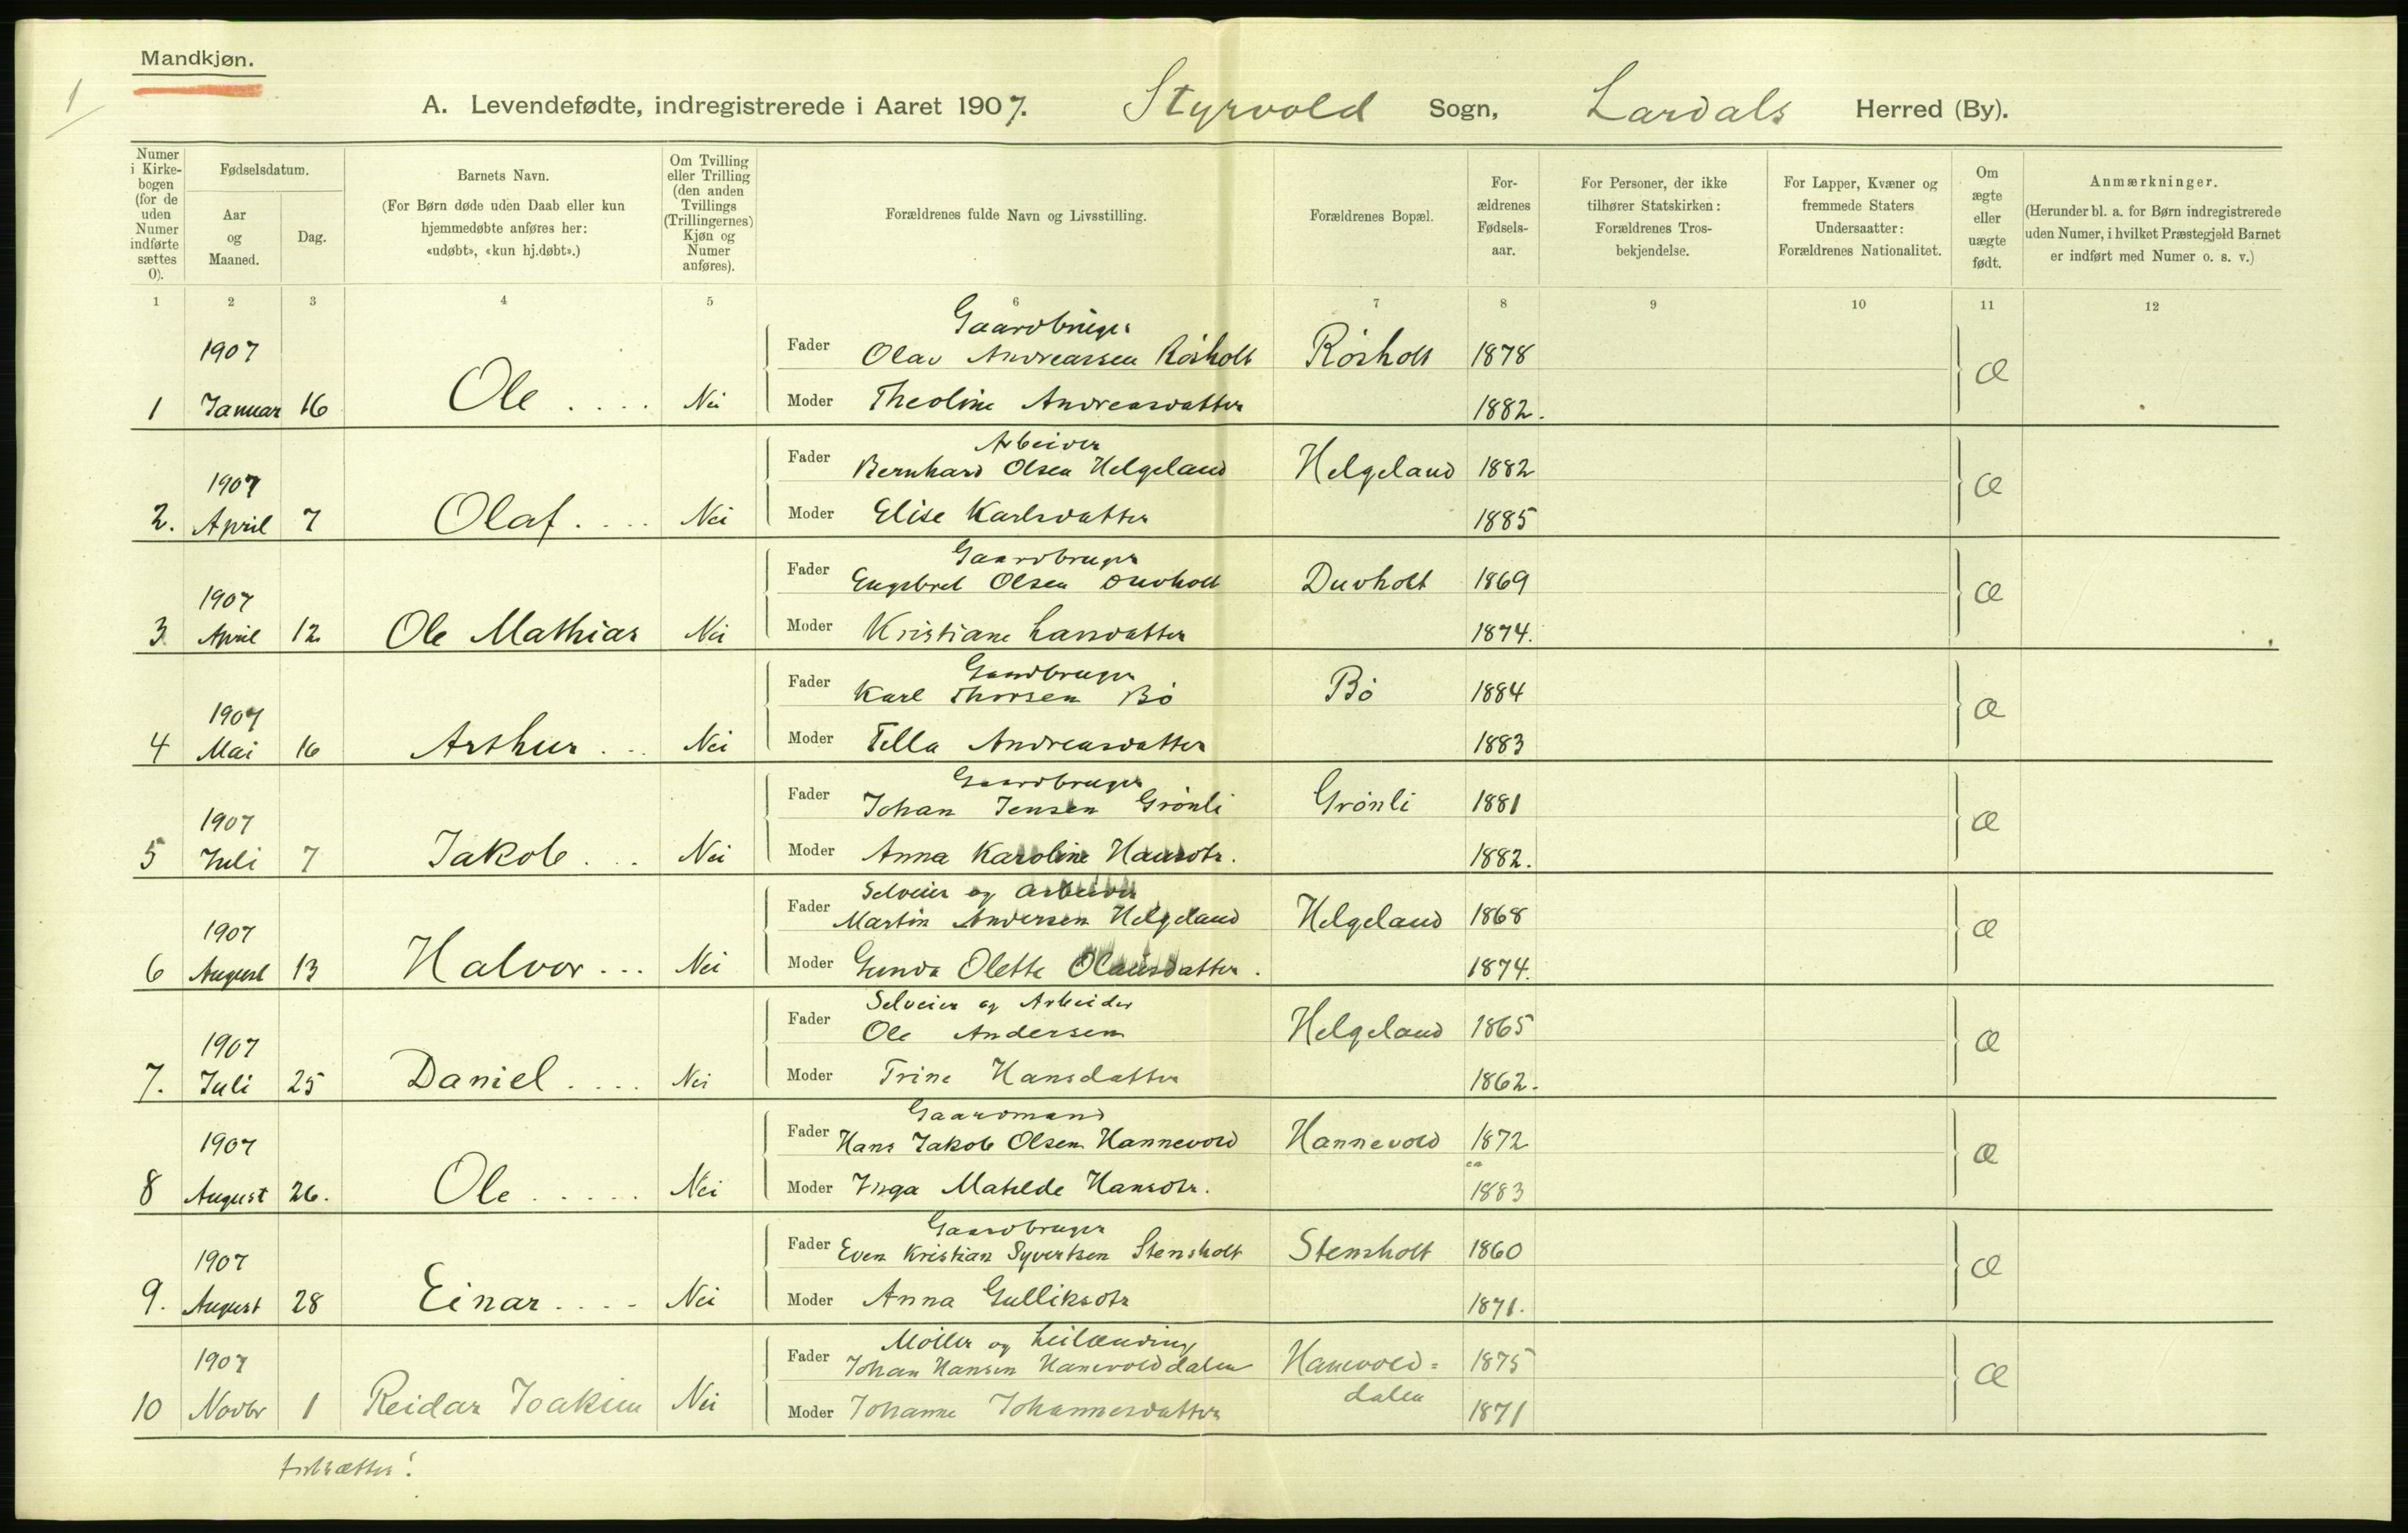 Mandkjøn.
1
A. Levendefødte, indregistrerede i Aaret 1907. Styrvold Sogn, Lardals Herred (By).
Numer i Kirkebogen (for de uden Numer indførte sættes 0).
Fødselsdatum.
Aar og Maaned.
Dag.
Barnets Navn.
(For Børn døde uden Daab eller kun hjemmedøbte anføres her: «udøbt», «kun hj.døbt».)
Om Tvilling eller Trilling (den anden Tvillings (Trillingernes) Kjøn og Numer anføres).
Forældrenes fulde Navn og Livsstilling.
Forældrenes Bopæl.
Forældrenes Fødselsaar.
For Personer, der ikke tilhører Statskirken: Forældrenes Trosbekjendelse.
For Lapper, Kvæner og fremmede Staters Undersaatter: Forældrenes Nationalitet.
Om ægte eller uægte født.
Anmærkninger.
(Herunder bl. a. for Børn indregistrerede uden Numer, i hvilket Præstegjeld Barnet er indført med Numer o. s. v.)
1 2 3 4 5 6 7 8 9 10 11 12
Gaardbruger
1907 Fader Olav Andreassen Rösholt Rösholt 1878 Æ
1 Januar 16 Ole .... Nei Moder Theoline Andreasdatter 1882.
Arbeider
1907 Fader Bernhard Olsen Helgeland Helgeland 1882 Æ
2. April 7 Olaf .... Nei Moder Elise Karlsdatter 1885
Gaardbruger
1907 Fader Engebret Olsen Duvholt Duvholt 1869 Æ
3. April 12 Ole Mathias Nei Moder Kristiane Larsdatter 1874.
Gaardbruger
1907 Fader Karl Thorsen Bö Bö 1884 Æ
4 Mai 16 Arthur ... Nei Moder Tella Andreasdatter 1883
Gaardbruger
1907 Fader Johan Jensen Grönli Grönli 1881 Æ
5 Juli 7 Jakob ... Nei Moder Anna Karoline Hansdtr. 1882.
Selveier og Arbeider
1907 Fader Martin Andersen Helgeland Helgeland 1868 Æ
6 August 13 Halvor ... Nei Moder Gunda Olette Olausdatter. 1874.
Selveier og Arbeider
1907 Fader Ole Andersen Helgeland 1865 Æ
7. Juli 25 Daniel .... Nei Moder Trine Hansdatter 1862.
Gaardmand
1907 Fader Hans Jakob Olsen Hannevold Hannevold 1872 Æ
8 August 26. Ole ..... Nei Moder Inga Matilde Hansdtr. ca 1883
Gaardbruger
1907 Fader Even Kristian Syvertsen Stensholt Stensholt 1860 Æ
9. August 28 Einar .... Nei Moder Anna Gulliksdtr 1871.
Möller og Leilænding
1907 Fader Johan Hansen Hanevolddalen Hanevold= 1875 Æ
dalen
10 Novbr 1 Reidar Joakim Nei Moder Johanne Johannesdatter 1871